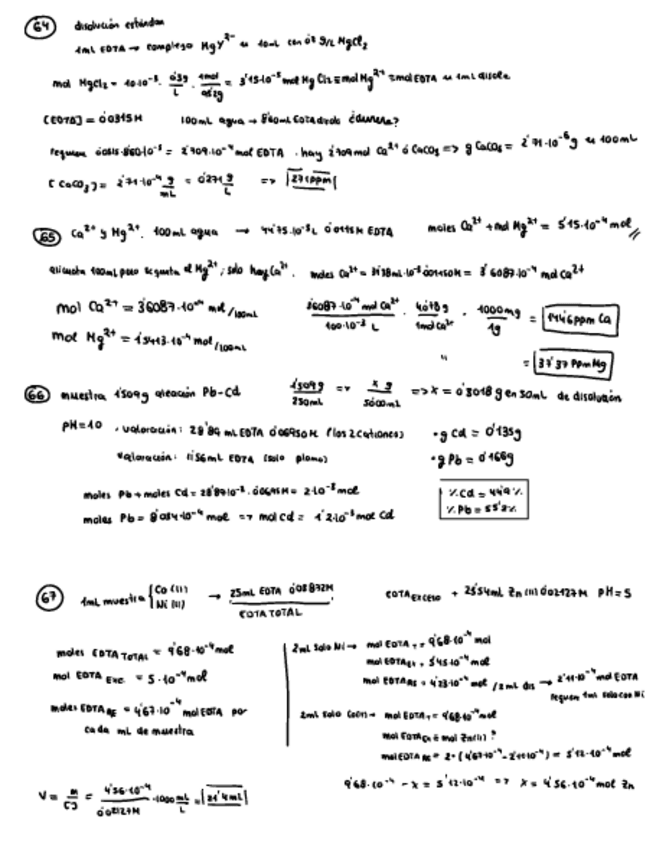 64 disolución estándar
1mL EDTA → complejo MgY²⁻ 10mL con 0'3 g/L MgCl₂
mol MgCl₂ = 10·10⁻³ · 0'3g/L · 1mol/95'2g = 3'15·10⁻⁵ mol MgCl₂ ≡ mol Mg²⁺ ≡ mol EDTA 1mL
[EDTA] = 0'0315M 100mL agua → EDTA ¿dureza?
= 2'709·10⁻⁴ mol EDTA . hay 2'709 mol Ca²⁺ ó CaCO₃ => g CaCO₃ = 2'71·10⁻⁶ g 100mL
[CaCO₃] = 2'71·10⁻⁴ g/mL = 0'271 g/L => 271ppm
65 Ca²⁺ y Mg²⁺. 100mL agua → 44'75·10⁻³L 0'0115M EDTA moles Ca²⁺ + mol Mg²⁺ = 5'15·10⁻⁴ mol
alícuota 100mL pero se quita el Mg²⁺, solo hay Ca²⁺. moles Ca²⁺ = 31'38mL·10⁻³ 0'01150M = 3'6087·10⁻⁴ mol Ca²⁺
mol Ca²⁺ = 3'6087·10⁻⁴ mol/100mL 3'6087·10⁻⁴ mol Ca²⁺/100·10⁻³ L · 40'78g/1mol Ca²⁺ · 1000mg/1g = 144'6ppm Ca
mol Mg²⁺ = 1'5413·10⁻⁴ mol/100mL " = 37'37 ppm Mg
66 muestra 1'509g aleación Pb-Cd 1'509g/250mL => x g/50'00mL => x = 0'3018 g en 50mL de disolución
pH=10 . valoración: 28'89 mL EDTA 0'06950M (los 2 cationes) · g Cd = 0'135g
valoración: 11'56mL EDTA (solo plomo) · g Pb = 0'166g
moles Pb + moles Cd = 28'89·10⁻³ · 0'0695M = 2·10⁻³ mol %Cd = 44'9%
moles Pb = 8'034·10⁻⁴ mol => mol Cd = 1'2·10⁻³ mol Cd %Pb = 55'2%
67 1mL muestra { Co(II) Ni(II) → 25mL EDTA 0'03872M / EDTA TOTAL EDTA EXCESO + 23'54mL Zn(II) 0'02127M pH=5
moles EDTA TOTAL = 9'68·10⁻⁴ mol
mol EDTA Exc. = 5·10⁻⁴ mol
moles EDTA RE = 4'67·10⁻⁴ mol EDTA por
cada mL de muestra
2mL solo Ni → mol EDTA T = 9'68·10⁻⁴ mol
mol EDTA Ex = 5'45·10⁻⁴ mol
mol EDTA RE = 4'23·10⁻⁴ mol /2mL dis → 2'11·10⁻⁴ mol EDTA
1mL solo con Ni
2mL → mol EDTA T = 9'68·10⁻⁴ mol
mol EDTA Ex ≡ mol Zn(II)?
mol EDTA RE = 2·(4'67·10⁻⁴ - 2'11·10⁻⁴) = 5'12·10⁻⁴ mol
9'68·10⁻⁴ - x = 5'12·10⁻⁴ => x = 4'56·10⁻⁴ mol Zn
V = n/[ ] = 4'56·10⁻⁴/0'02127M · 1000 mL/L = 21'4mL